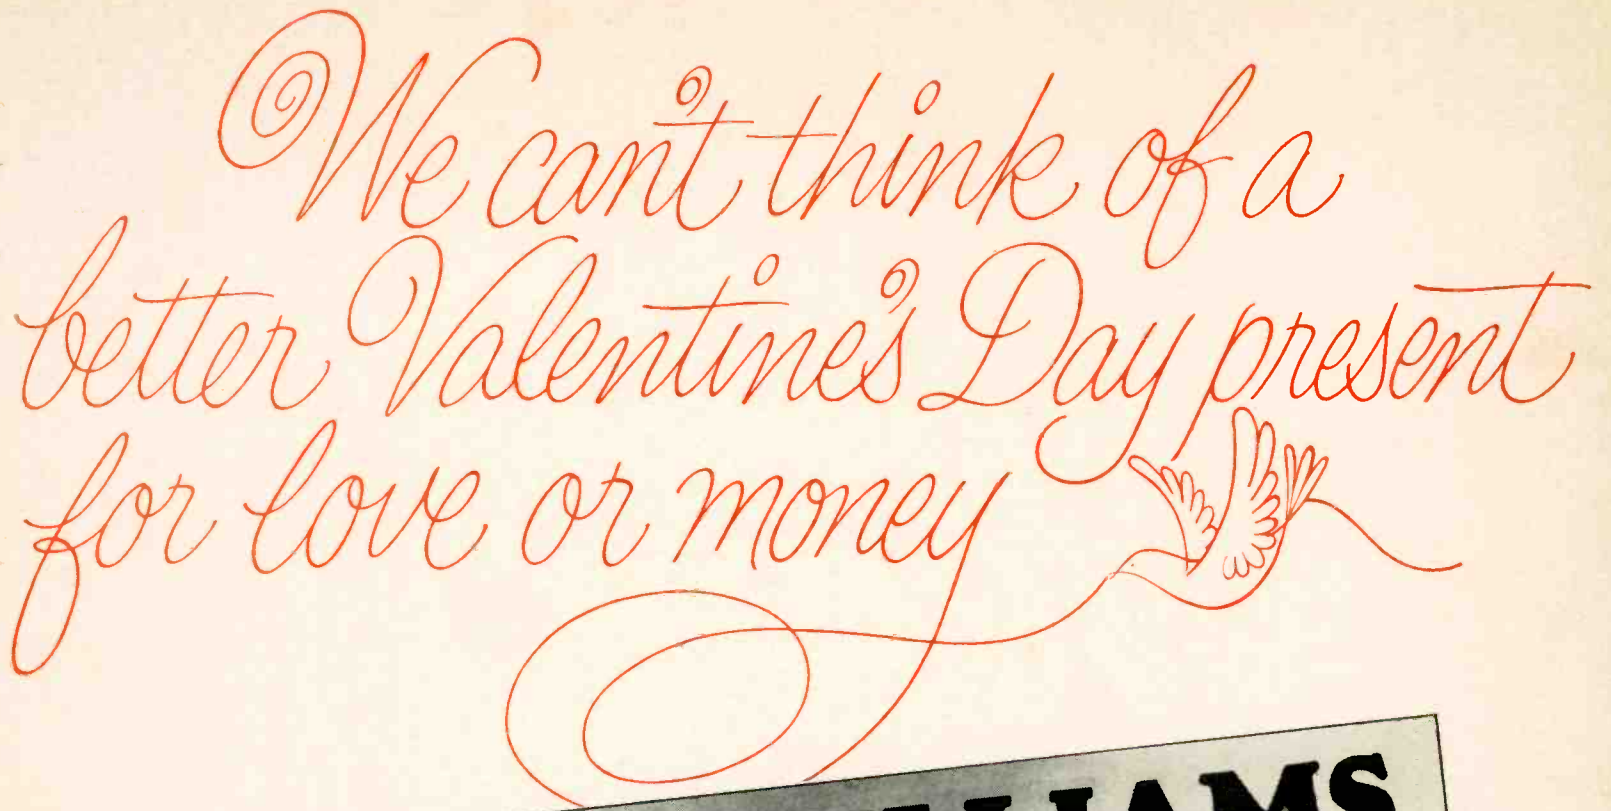 We can't think of a
better Valentine's Day present
for love or money